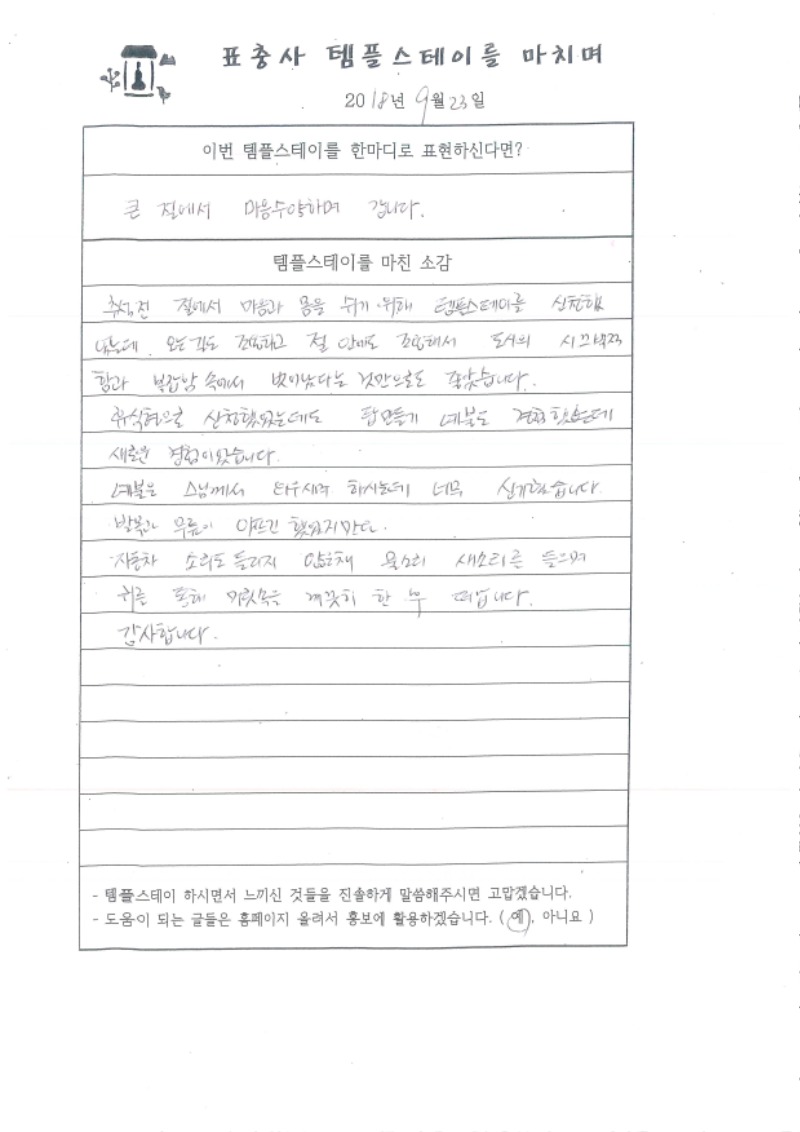 표충사 템플스테이를 마치며
2018년 9월 23일
이번 템플스테이를 한마디로 표현하신다면?
큰 절에서 마음수양하며 갑니다.
템플스테이를 마친 소감
추석전 절에서 마음과 몸을 쉬기 위해 템플스테이를 신청했
었는데. 오는길도 조용하고 절 안에도 조용해서 도시의 시끄벅적
함과 복잡함 속에서 벗어났다는 것만으로도 좋았습니다.
휴식형으로 신청했었는데도 탑만들기 예불도 경험했는데
새로운 경험이었습니다.
예불은 스님께서 하시는데 너무 신기했습니다.
발목과 무릎이 아프긴 했었지만요.
자동차 소리도 들리지 않은채 물소리 새소리를 들으며
귀를 통해 머릿속을 깨끗히 한 뒤 떠납니다.
감사합니다.
- 템플스테이 하시면서 느끼신 것들을 진솔하게 말씀해주시면 고맙겠습니다.
- 도움이 되는 글들은 홈페이지 올려서 홍보에 활용하겠습니다. ( 예, 아니요 )